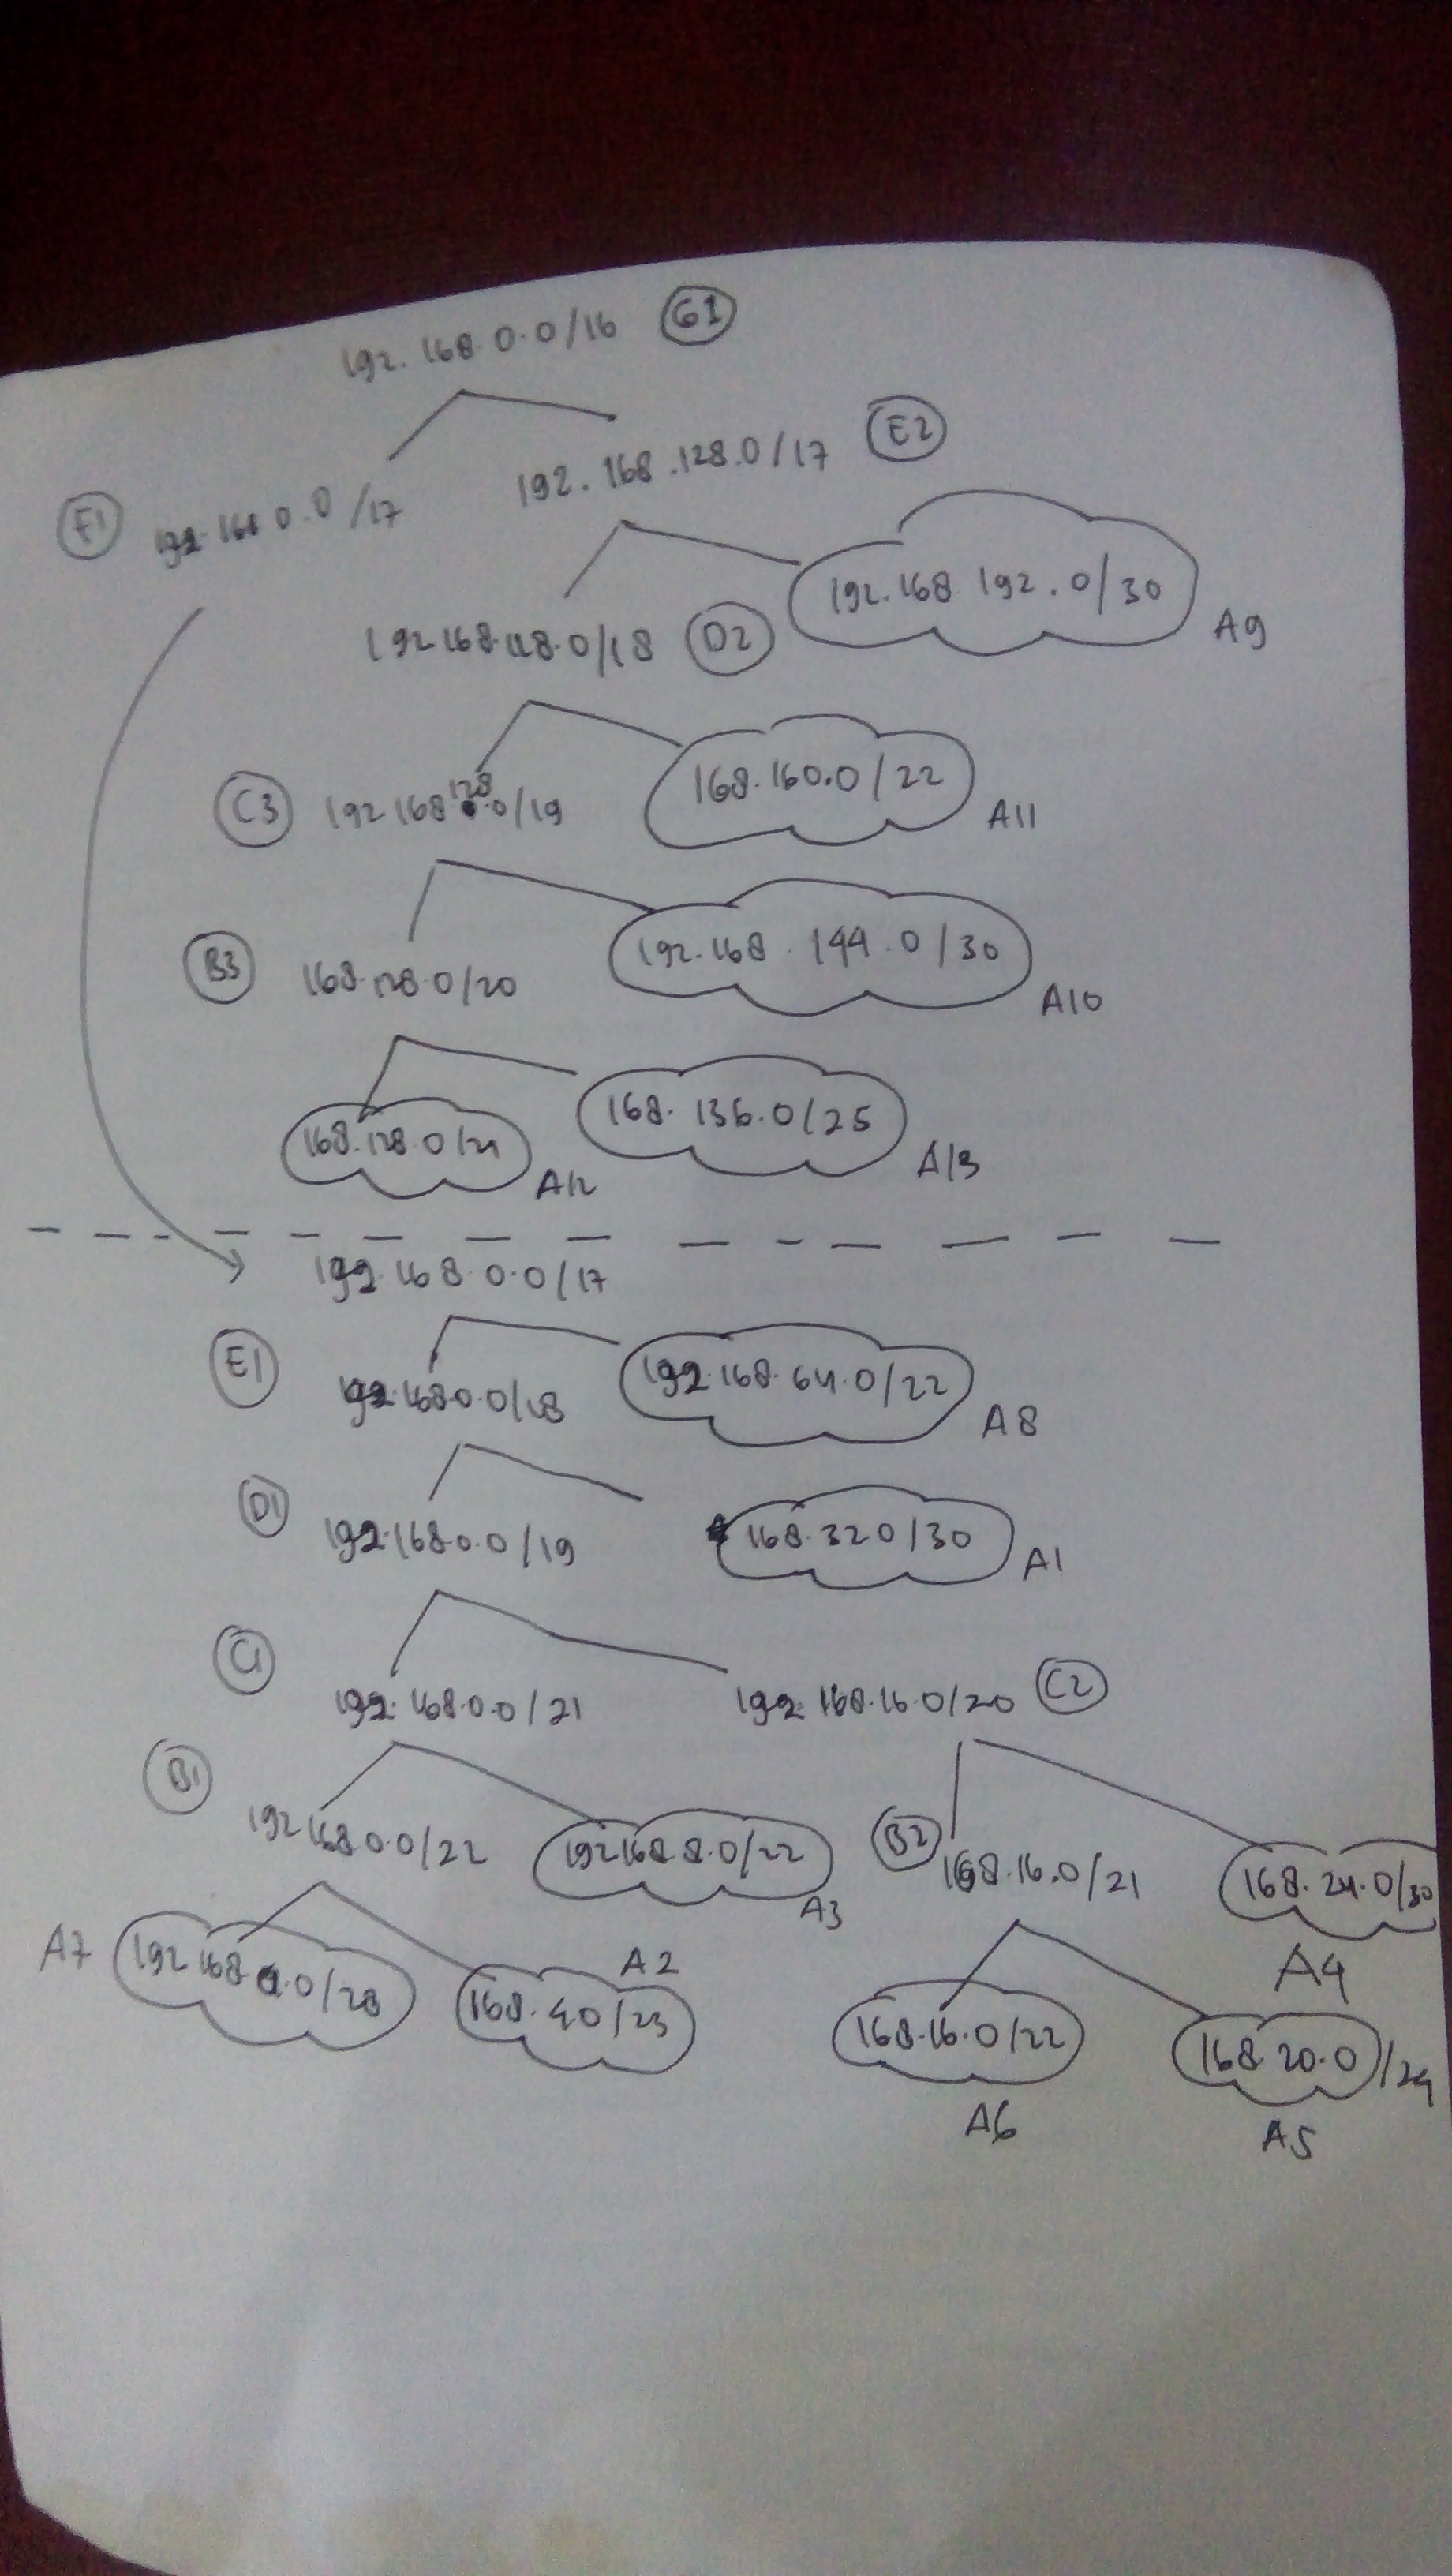 192.168.0.0/16 G1
F1 192.168.0.0/17 192.168.128.0/17 E2
192.168.128.0/18 D2 192.168.192.0/30 A9
C3 192.168.128.0/19 168.160.0/22 A11
B3 168.128.0/20 192.168.144.0/30 A10
168.128.0/21 A12 168.136.0/25 A13
192.168.0.0/17
E1 192.168.0.0/18 192.168.64.0/22 A8
D1 192.168.0.0/19 168.32.0/30 A1
C1 192.168.0.0/21 192.168.16.0/20 C2
B1 192.168.0.0/22 192.168.8.0/22 A3 B2 168.16.0/21 168.24.0/30 A4
A7 192.168.0.0/28 168.4.0/23 A2 168.16.0/22 A6 168.20.0/24 A5